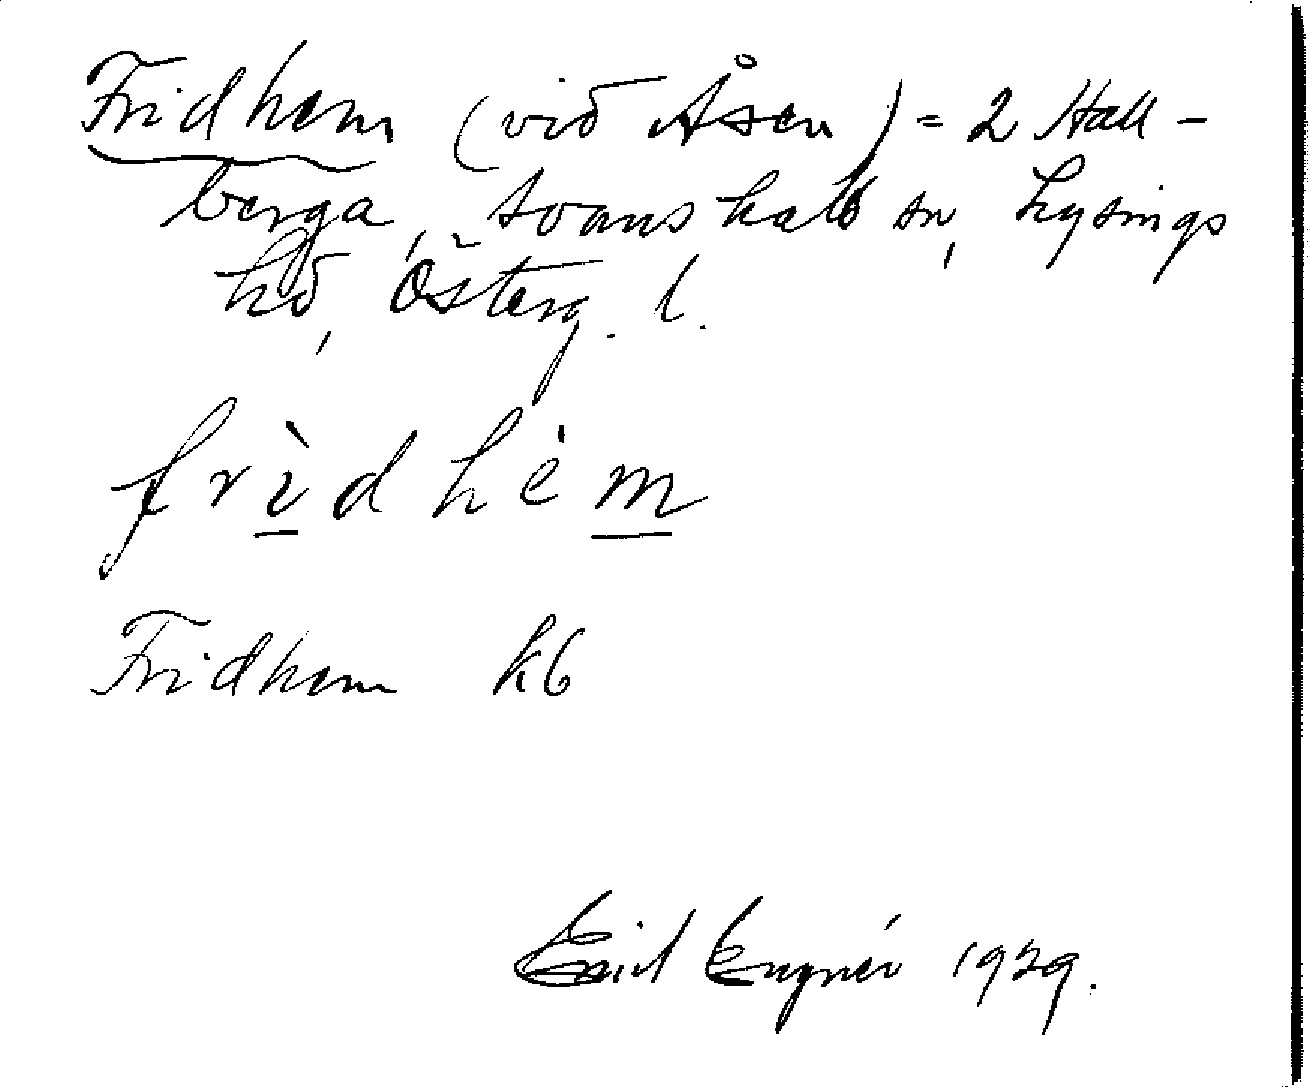 Fridhem (vid Åsen) = 2 Hall-
berga, Svanshals sn, Lysings
hd, Österg. l.
frìdhèm
Fridhem kb
Emil 1929.